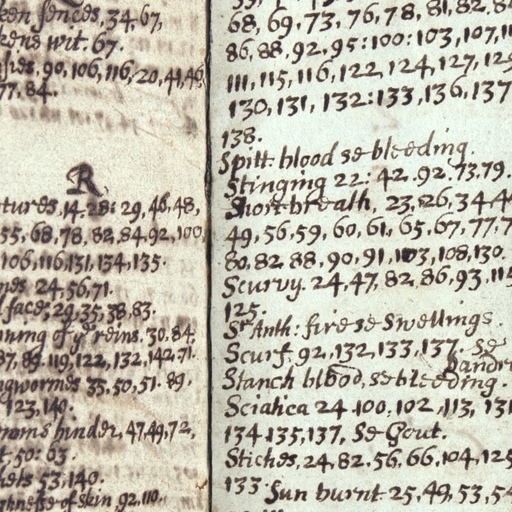 ken sences, 34, 67,
kens wit. 67.
90, 106, 116, 20, 44, 46,
77, 84.
R
tures, 14. 28: 29, 46, 48,
55, 68, 78, 82, 84, 92, 100,
106, 116, 131, 134, 135.
24, 56, 71.
face, 29, 35, 38, 83.
ning of yᵉ reins. 30. 84,
87, 89, 119, 122, 132, 142, 71.
ngwormes 35, 50, 51. 89,
123, 140.
hinder, 47, 49, 72,
50: 63.
53, 140.
of skin 92, 110.
68, 69, 73, 76, 78, 81, 82, 8
86, 88, 92, 95: 100: 103, 107, 11
111, 115, 116, 122, 124, 127, 129
130, 131, 132: 133, 136, 137
138.
Spitt blood se bleeding.
Stinging 22: 42. 92. 73. 79.
Short breath, 23, 26, 34, 4
49, 56, 59, 60, 61, 65, 67, 77, 7
80, 82, 88, 90, 91, 103, 108, 130.
Scurvy. 24, 47, 82, 86, 93, 115
125.
Sᵗ Anth: fire se Swellings.
Scurf. 92, 132, 133, 137. se
Dandr
Stanch blood, se bleeding.
Sciatica 24. 100. 102, 113, 131
134. 135, 137, Se Gout.
Stiches, 24, 82, 56, 66, 104, 125
133
Sun burnt. 25, 49, 53, 54